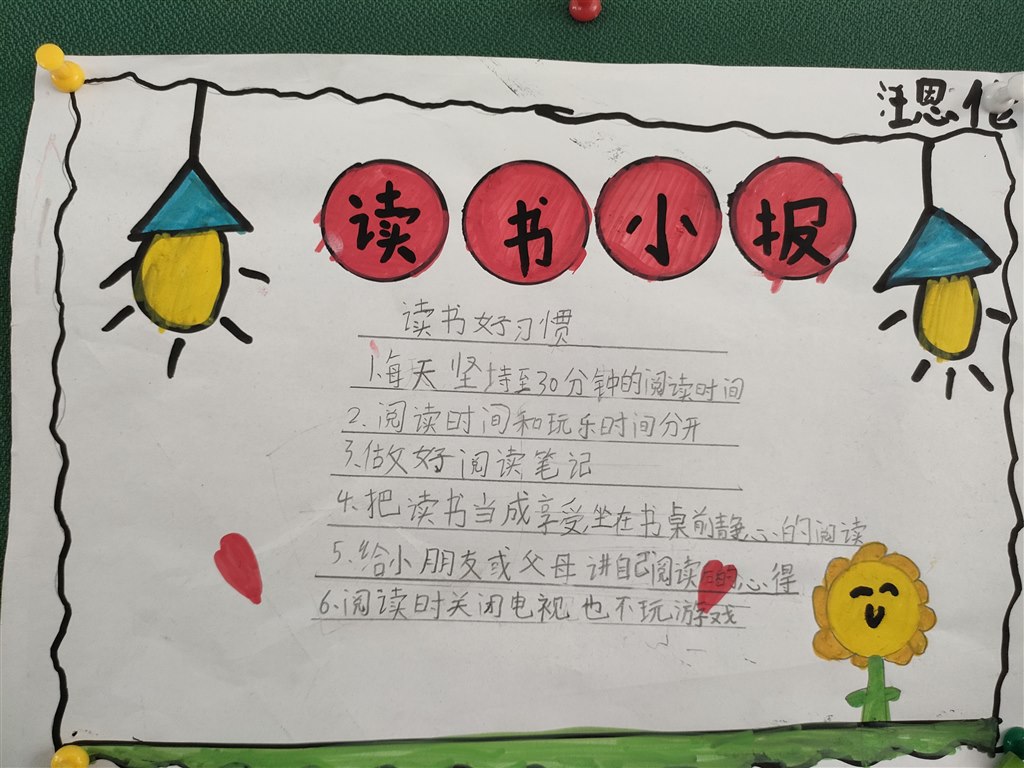 汪恩伦
读书小报
读书好习惯
1.每天坚持至30分钟的阅读时间
2.阅读时间和玩乐时间分开
3.做好阅读笔记
4.把读书当成享受坐在书桌前静心的阅读
5.给小朋友或父母讲自己阅读后的心得
6.阅读时关闭电视也不玩游戏